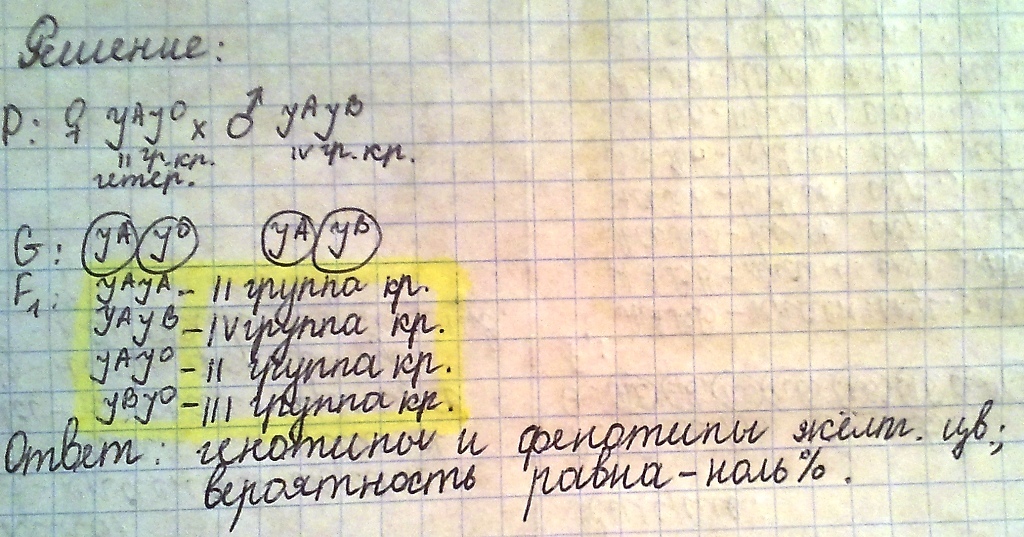 Решение:
P: ♀ JᴬJᴼ x ♂ JᴬJᴮ
II гр. кр. IV гр. кр.
гетер.
G: Jᴬ Jᴼ Jᴬ Jᴮ
F₁: JᴬJᴬ - II группа кр.
JᴬJᴮ - IV группа кр.
JᴬJᴼ - II группа кр.
JᴮJᴼ - III группа кр.
Ответ: генотипы и фенотипы жёлт. цв.;
вероятность равна - ноль%.